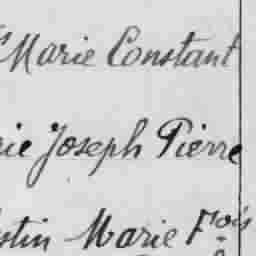 Marie Constant
ie Joseph Pierre
stin Marie Fçois